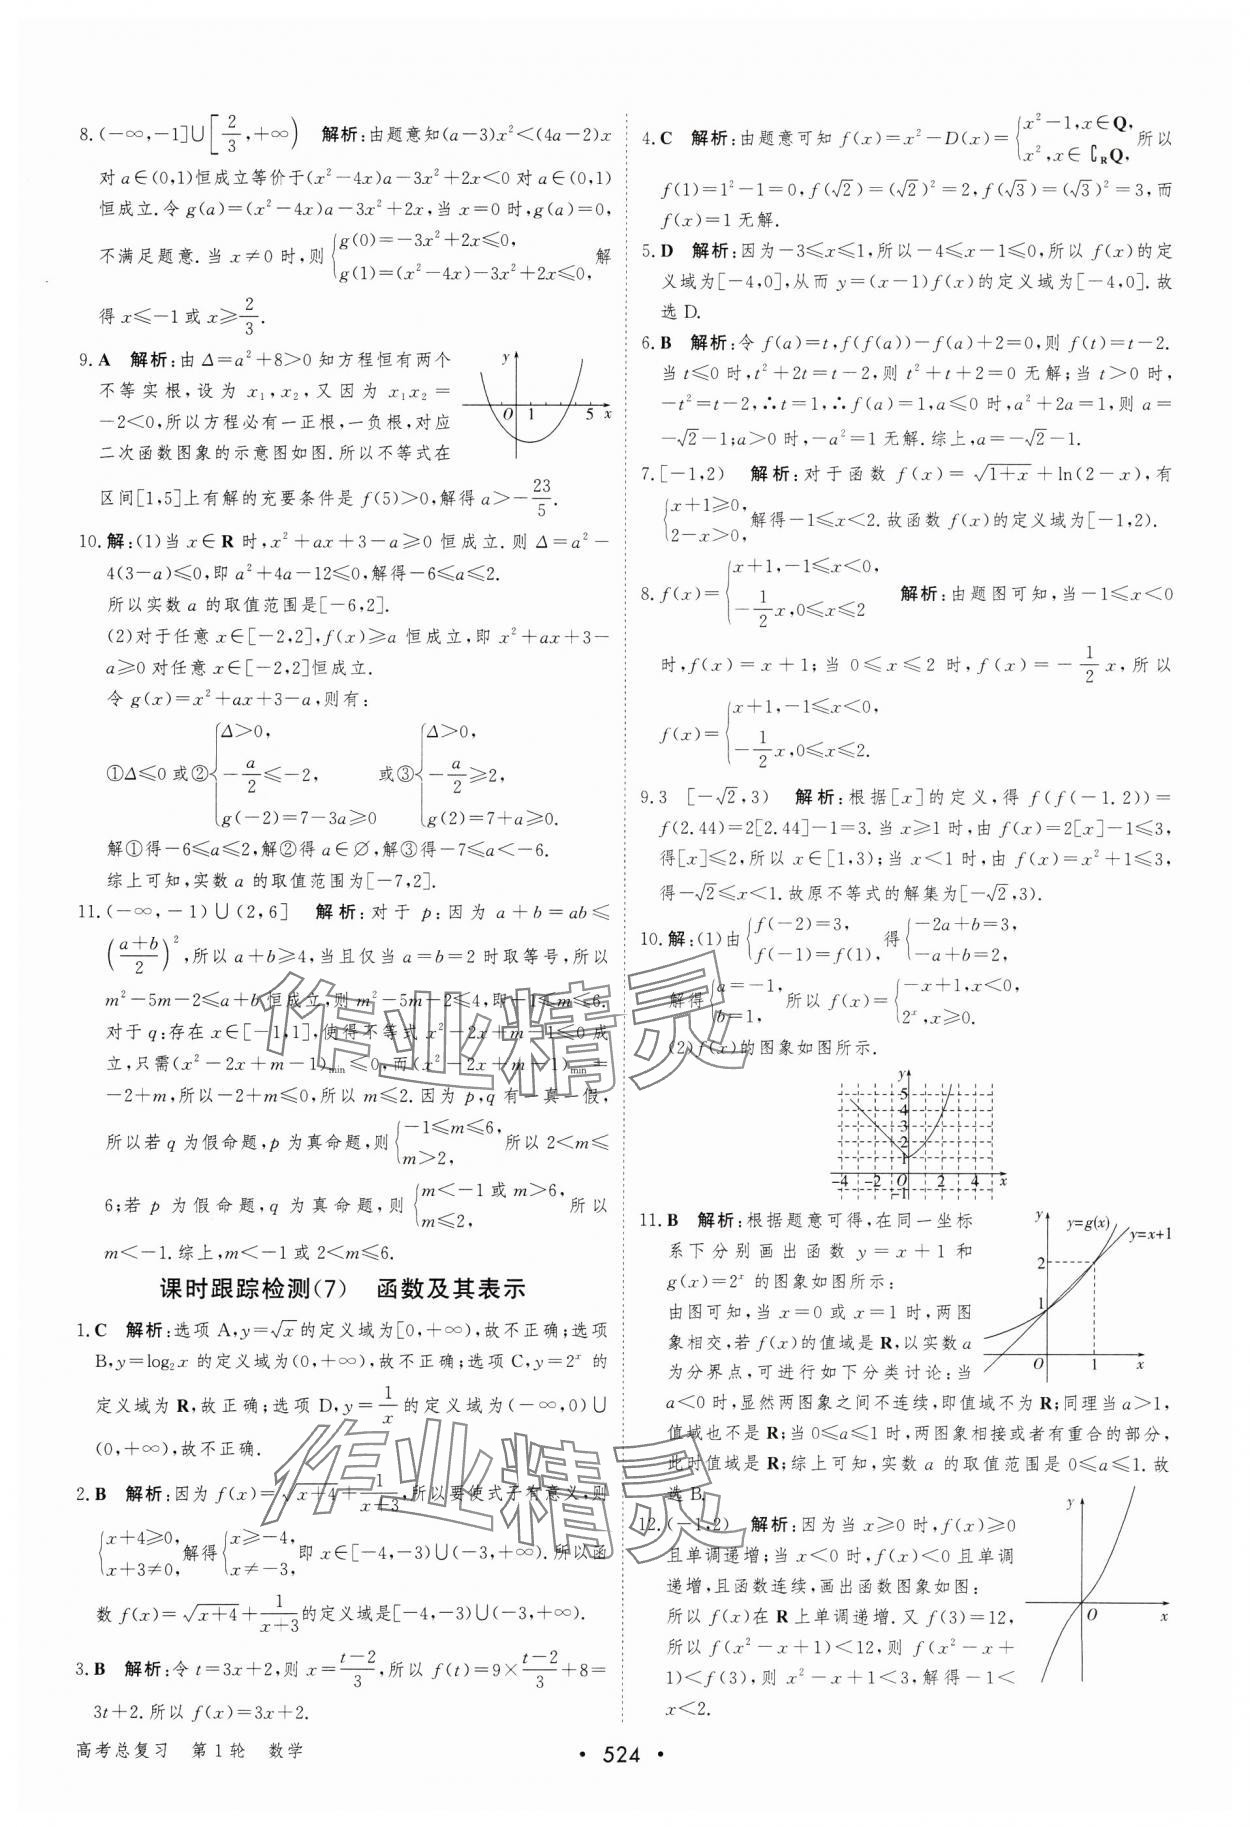 8.(-∞,-1]∪[2/3,+∞) 解析:由题意知(a-3)x²<(4a-2)x
对a∈(0,1)恒成立等价于(x²-4x)a-3x²+2x<0对a∈(0,1)
恒成立.令g(a)=(x²-4x)a-3x²+2x,当x=0时,g(a)=0,
不满足题意.当x≠0时,则{g(0)=-3x²+2x≤0, g(1)=(x²-4x)-3x²+2x≤0, 解
得x≤-1或x≥2/3.
9.A 解析:由Δ=a²+8>0知方程恒有两个
不等实根,设为x₁,x₂,又因为x₁x₂=
-2<0,所以方程必有一正根,一负根,对应
二次函数图象的示意图如图.所以不等式在
区间[1,5]上有解的充要条件是f(5)>0,解得a>-23/5.
y
O 1 5 x
10.解:(1)当x∈R时,x²+ax+3-a≥0恒成立.则Δ=a²-
4(3-a)≤0,即a²+4a-12≤0,解得-6≤a≤2.
所以实数a的取值范围是[-6,2].
(2)对于任意x∈[-2,2],f(x)≥a恒成立,即x²+ax+3-
a≥0对任意x∈[-2,2]恒成立.
令g(x)=x²+ax+3-a,则有:
①Δ≤0或②{Δ>0, -a/2≤-2, g(-2)=7-3a≥0 或③{Δ>0, -a/2≥2, g(2)=7+a≥0.
解①得-6≤a≤2,解②得a∈∅,解③得-7≤a<-6.
综上可知,实数a的取值范围为[-7,2].
11.(-∞,-1)∪(2,6] 解析:对于p:因为a+b=ab≤
((a+b)/2)²,所以a+b≥4,当且仅当a=b=2时取等号,所以
m²-5m-2≤a+b恒成立,则m²-5m-2≤4,即-1≤m≤6.
对于q:存在x∈[-1,1],使得不等式x²-2x+m-1≤0成
立,只需(x²-2x+m-1)min≤0,而(x²-2x+m-1)min=
-2+m,所以-2+m≤0,所以m≤2.因为p,q有一真一假,
所以若q为假命题,p为真命题,则{-1≤m≤6, m>2, 所以2<m≤
6;若p为假命题,q为真命题,则{m<-1或m>6, m≤2, 所以
m<-1.综上,m<-1或2<m≤6.
课时跟踪检测(7) 函数及其表示
1.C 解析:选项A,y=√x的定义域为[0,+∞),故不正确;选项
B,y=log₂x的定义域为(0,+∞),故不正确;选项C,y=2ˣ的
定义域为R,故正确;选项D,y=1/x的定义域为(-∞,0)∪
(0,+∞),故不正确.
2.B 解析:因为f(x)=√(x+4)+1/(x+3),所以要使式子有意义,则
{x+4≥0, x+3≠0, 解得{x≥-4, x≠-3, 即x∈[-4,-3)∪(-3,+∞).所以函
数f(x)=√(x+4)+1/(x+3)的定义域是[-4,-3)∪(-3,+∞).
3.B 解析:令t=3x+2,则x=(t-2)/3,所以f(t)=9×(t-2)/3+8=
3t+2.所以f(x)=3x+2.
4.C 解析:由题意可知f(x)=x²-D(x)={x²-1,x∈Q, x²,x∈∁RQ, 所以
f(1)=1²-1=0,f(√2)=(√2)²=2,f(√3)=(√3)²=3,而
f(x)=1无解.
5.D 解析:因为-3≤x≤1,所以-4≤x-1≤0,所以f(x)的定
义域为[-4,0],从而y=(x-1)f(x)的定义域为[-4,0].故
选D.
6.B 解析:令f(a)=t,f(f(a))-f(a)+2=0,则f(t)=t-2.
当t≤0时,t²+2t=t-2,则t²+t+2=0无解;当t>0时,
-t²=t-2,∴t=1,∴f(a)=1,a≤0时,a²+2a=1,则a=
-√2-1;a>0时,-a²=1无解.综上,a=-√2-1.
7.[-1,2) 解析:对于函数f(x)=√(1+x)+ln(2-x),有
{x+1≥0, 2-x>0, 解得-1≤x<2.故函数f(x)的定义域为[-1,2).
8.f(x)={x+1,-1≤x<0, -1/2x,0≤x≤2 解析:由题图可知,当-1≤x<0
时,f(x)=x+1;当0≤x≤2时,f(x)=-1/2x,所以
f(x)={x+1,-1≤x<0, -1/2x,0≤x≤2.
9.3 [-√2,3) 解析:根据[x]的定义,得f(f(-1.2))=
f(2.44)=2[2.44]-1=3.当x≥1时,由f(x)=2[x]-1≤3,
得[x]≤2,所以x∈[1,3);当x<1时,由f(x)=x²+1≤3,
得-√2≤x<1.故原不等式的解集为[-√2,3).
10.解:(1)由{f(-2)=3, f(-1)=f(1), 得{-2a+b=3, -a+b=2,
解得{a=-1, b=1, 所以f(x)={-x+1,x<0, 2ˣ,x≥0.
(2)f(x)的图象如图所示.
y
5
4
3
2
1
-4 -2 O 2 4 x
-1
11.B 解析:根据题意可得,在同一坐标
系下分别画出函数y=x+1和
g(x)=2ˣ的图象如图所示:
由图可知,当x=0或x=1时,两图
象相交,若f(x)的值域是R,以实数a
为分界点,可进行如下分类讨论:当
a<0时,显然两图象之间不连续,即值域不为R;同理当a>1,
值域也不是R;当0≤a≤1时,两图象相接或者有重合的部分,
此时值域是R;综上可知,实数a的取值范围是0≤a≤1.故
选B.
y y=g(x) y=x+1
2
1
O 1 x
12.(-1,2) 解析:因为当x≥0时,f(x)≥0
且单调递增;当x<0时,f(x)<0且单调
递增,且函数连续,画出函数图象如图:
所以f(x)在R上单调递增.又f(3)=12,
所以f(x²-x+1)<12,则f(x²-x+
1)<f(3),则x²-x+1<3,解得-1<
x<2.
y
O x
高考总复习 第1轮 数学
• 524 •
作业精灵
作业精灵